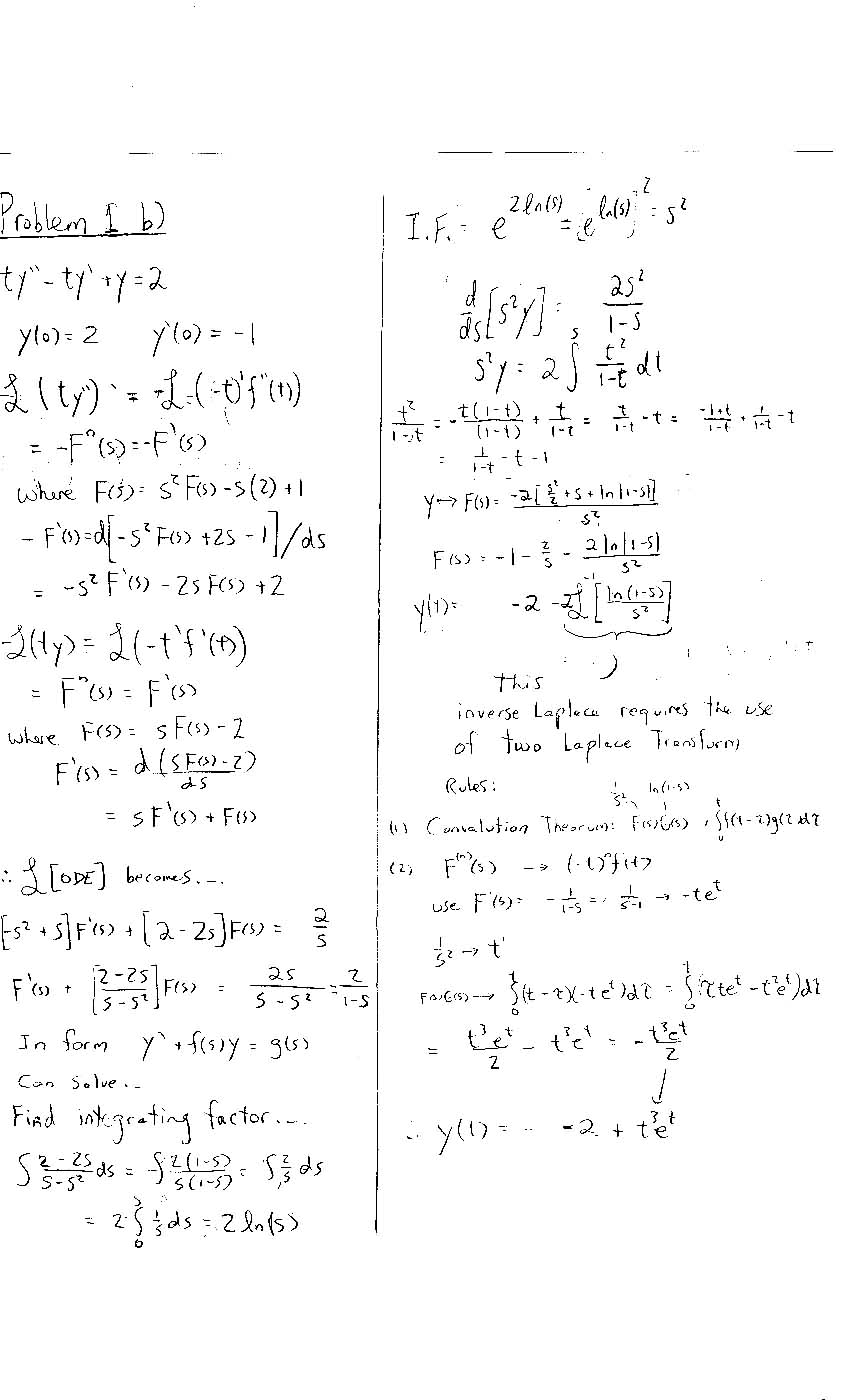 Problem 1 b)
ty'' - ty' + y = 2
y(0) = 2 y'(0) = -1
ℒ(ty'') = -ℒ-(-t)'f''(t)
= -Fⁿ(s) = -F'(s)
where F(s) = s²F(s) - s(2) + 1
- F'(s) = d[-s²F(s) + 2s - 1]/ds
= -s²F'(s) - 2sF(s) + 2
-ℒ(ty) = ℒ(-t'f'(t))
= Fⁿ(s) = F'(s)
where F(s) = sF(s) - 2
F'(s) = d(sF(s)-2)/ds
= sF'(s) + F(s)
∴ ℒ[ODE] becomes...
[-s² + s]F'(s) + [2 - 2s]F(s) = 2/s
F'(s) + [(2-2s)/(s-s²)]F(s) = 2s/(s-s²) = 2/(1-s)
In form y' + f(s)y = g(s)
Can solve...
Find integrating factor...
∫ (2-2s)/(s-s²) ds = ∫ 2(1-s)/s(1-s) = ∫ 2/s ds
= 2 ∫₀ˢ 1/s ds = 2 ln(s)
I.F. = e^(2ln(s)) = [e^(ln(s))]² = s²
d/ds [s²y] = 2s²/(1-s)
s²y = 2 ∫ˢ t²/(1-t) dt
t²/(1-t) = -t(1-t)/(1-t) + t/(1-t) = t/(1-t) - t = (-1+t)/(1-t) + 1/(1-t) - t
= 1/(1-t) - t - 1
y → F(s) = -2[s²/2 + s + ln|1-s|]/s²
F(s) = -1 - 2/s - 2ln|1-s|/s²
y(t) = -2 -2ℒ⁻¹[ln(1-s)/s²]
this
inverse Laplace requires the use
of two Laplace Transform
Rules: 1/s² ln(1-s)
(1) Convalution Theorum: F(s)G(s) , ∫₀ᵗ f(t-τ)g(τ)dτ
(2) F⁽ⁿ⁾(s) → (-t)ⁿf(t)
use F'(s) = -1/(1-s) = 1/(s-1) → -te^t
1/s² → t'
F(s)G(s) → ∫₀ᵗ (t-τ)(-te^t)dτ = ∫₀ᵗ (τte^t - t²e^t)dτ
= t³e^t/2 - t³e^t = -t³e^t/2
∴ y(t) = -2 + t³e^t